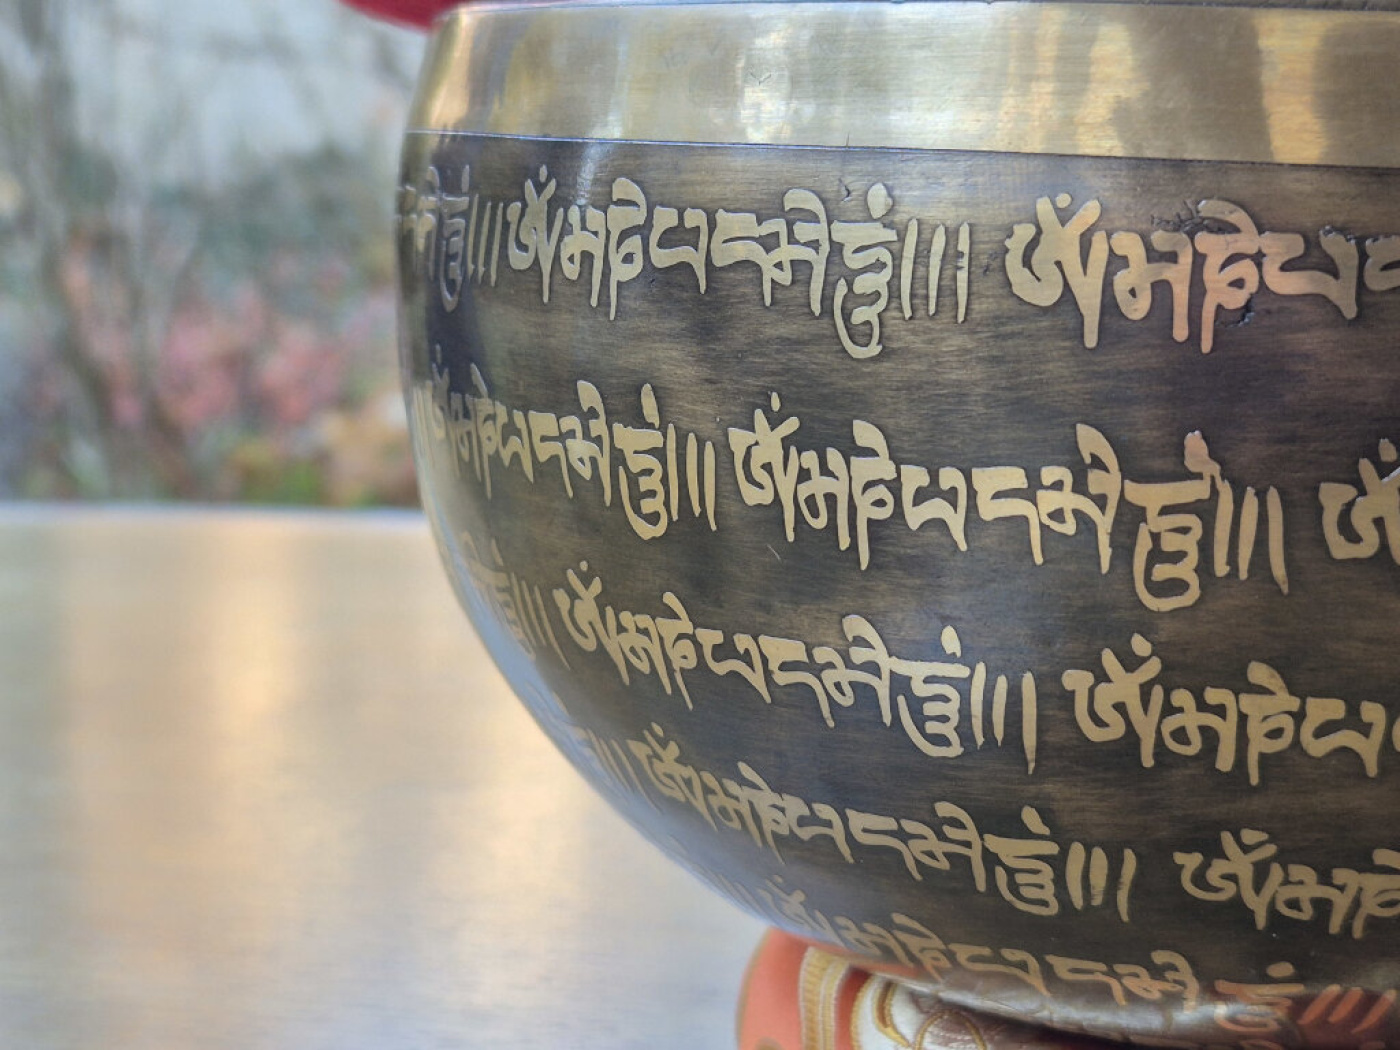 ཧཱུྃ།།། ཨོཾ་མ་ཎི་པ་དྨེ་ཧཱུྃ།།། ཨོཾ་མ་ཎི་པ
མ་ཎི་པ་དྨེ་ཧཱུྃ།།། ཨོཾ་མ་ཎི་པ་དྨེ་ཧཱུྃ།།། ཨོཾ
ཧཱུྃ།།། ཨོཾ་མ་ཎི་པ་དྨེ་ཧཱུྃ།།། ཨོཾ་མ་ཎི་པ
ཨོཾ་མ་ཎི་པ་དྨེ་ཧཱུྃ།།། ཨོཾ་མ་ཎི
ཨོཾ་མ་ཎི་པ་དྨེ་ཧཱུྃ།།།